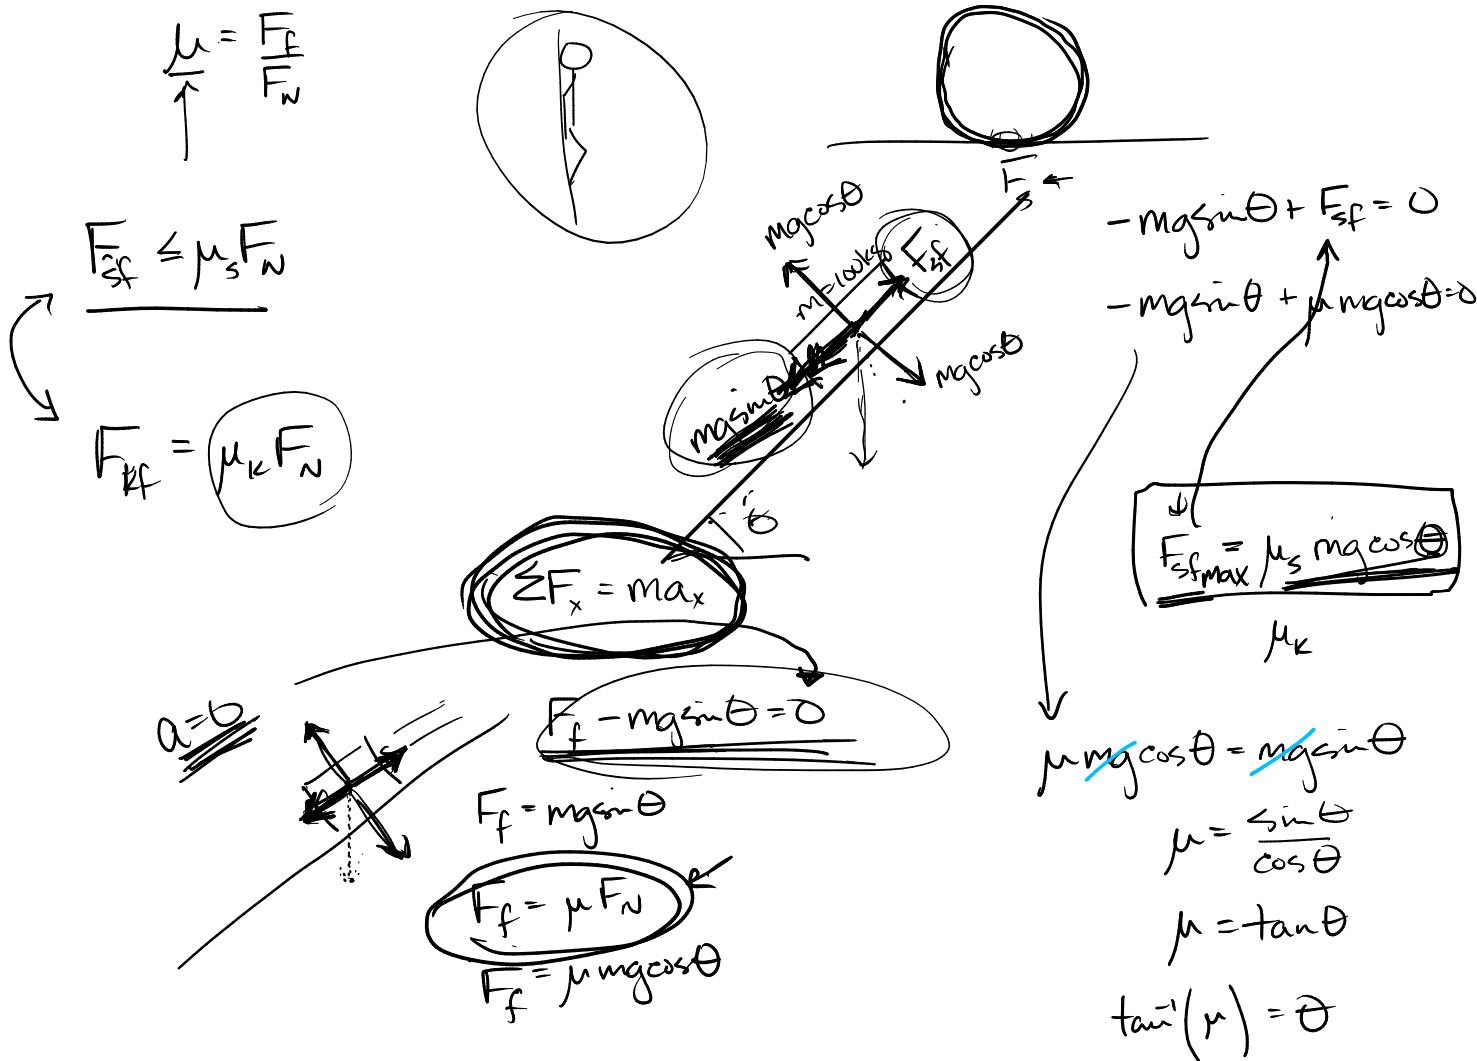 μ = F_f / F_N
F_sf ≤ μ_s F_N
F_kf = μ_k F_N
F
mgcosθ
F_sf
m=100kg
mgcosθ
mgsinθ
θ
ΣF_x = ma_x
a=0
F_f - mgsinθ = 0
F_f = mgsinθ
F_f = μF_N
F_f = μmgcosθ
-mgsinθ + F_sf = 0
-mgsinθ + μmgcosθ=0
F_sfmax = μ_s mgcosθ
μ_k
μmgcosθ = mgsinθ
μ = sinθ / cosθ
μ = tanθ
tan⁻¹(μ) = θ